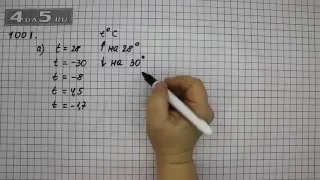 4DA5.RU
1001.
t°C
а) t = 28 ↑ на 28°
t = -30 ↓ на 30°
t = -8
t = 4,5
t = -1,7